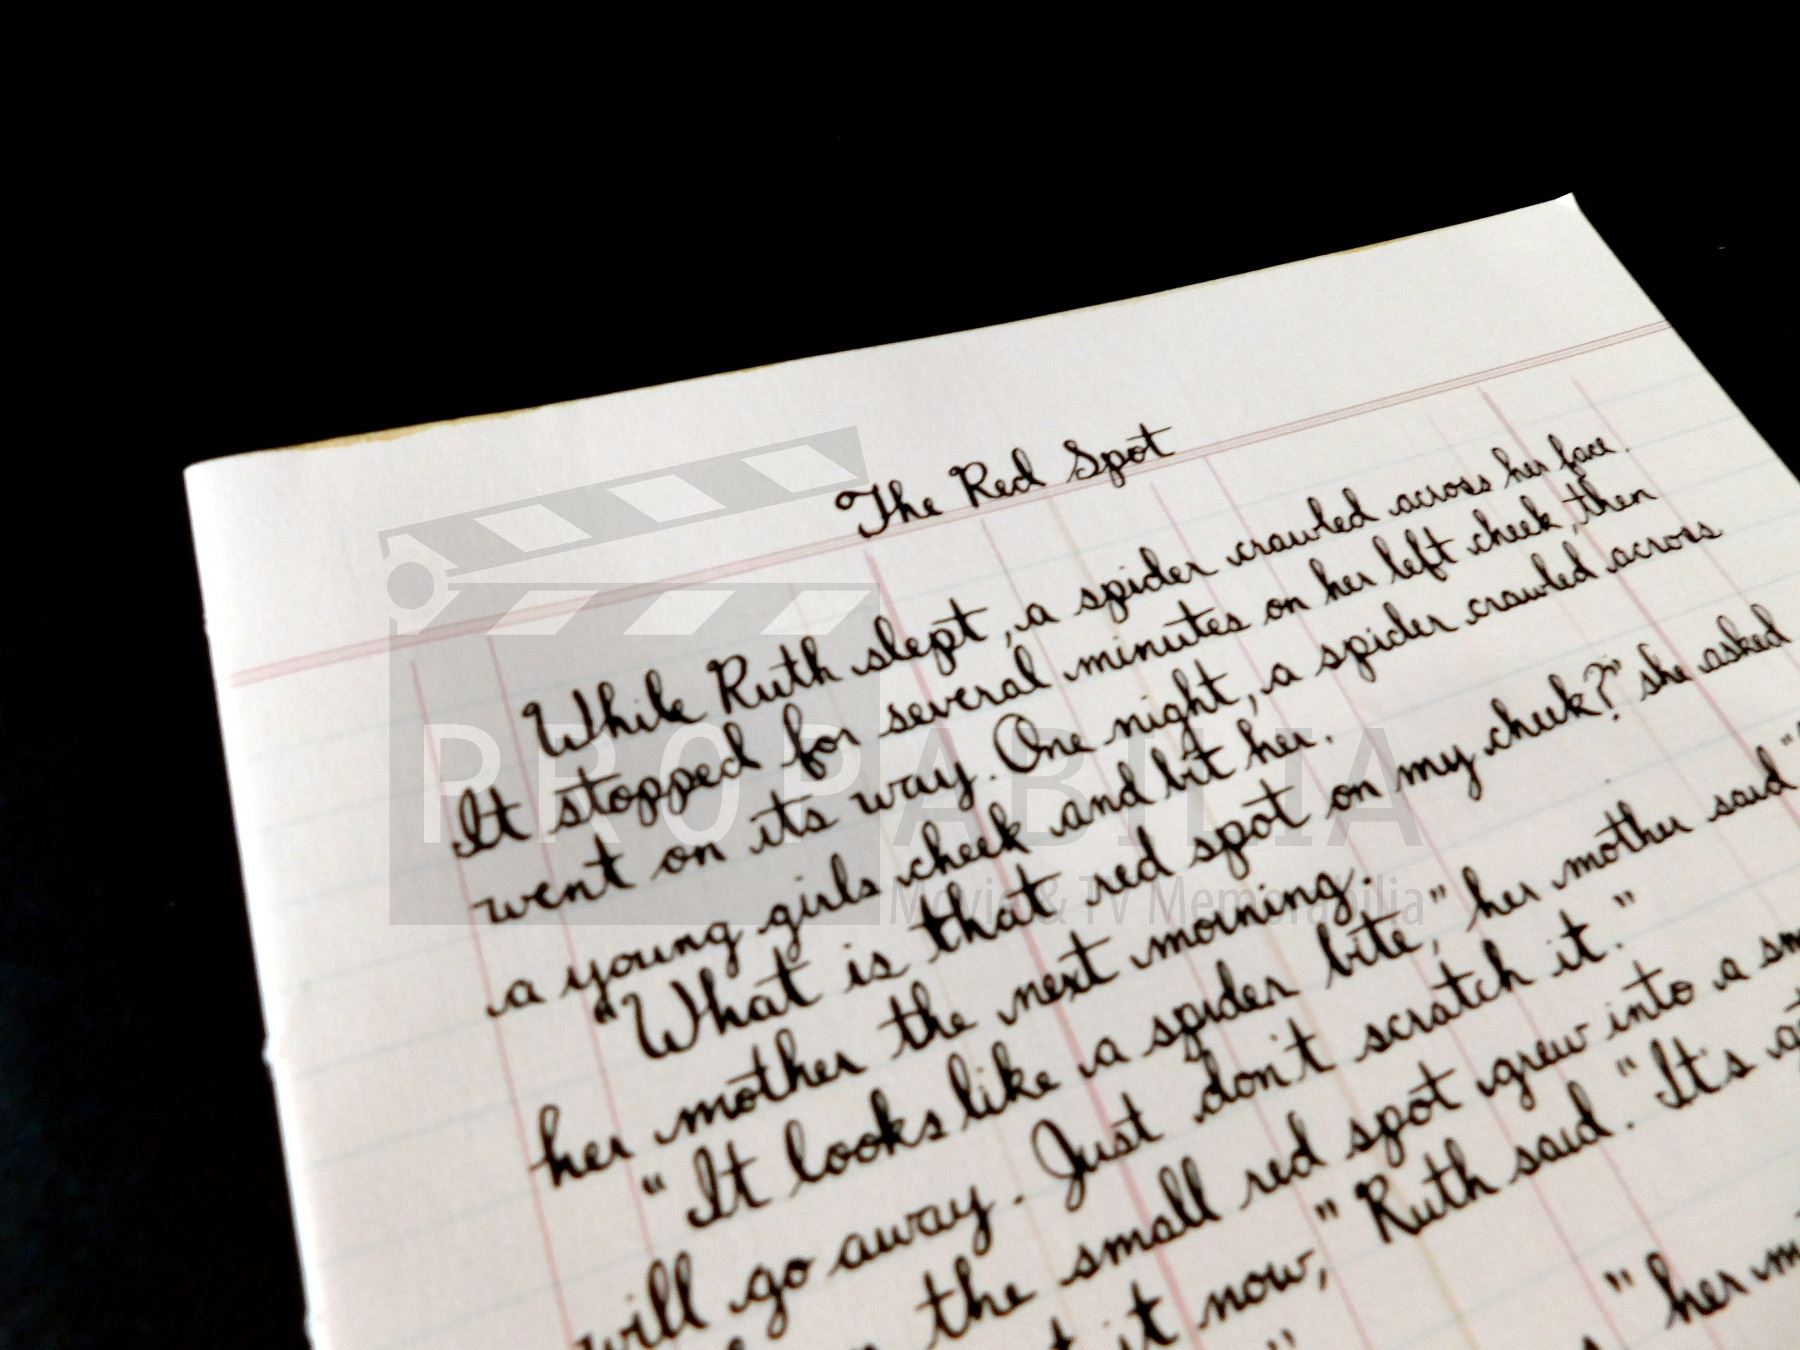 The Red Spot
While Ruth slept, a spider crawled across her face.
It stopped for several minutes on her left cheek, then
went on its way. One night, a spider crawled across
a young girls cheek and bit her.
"What is that red spot on my cheek?" she asked
her mother the next morning.
"It looks like a spider bite," her mother said "
will go away. Just don't scratch it."
the small red spot grew into a sm
it now," Ruth said. "It's
" her
PROPABILIA
Movie & TV Memorabilia